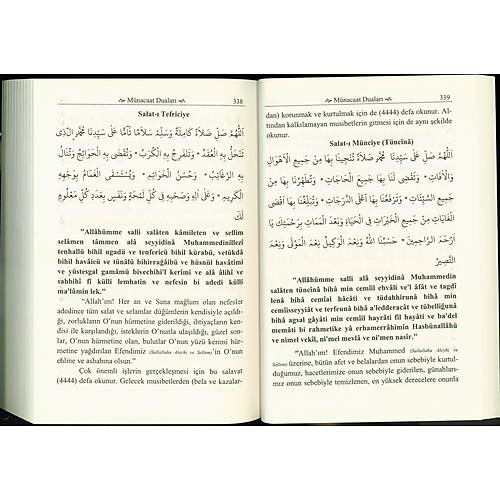 Münacaat Duaları 338
Salat-ı Tefriciye
اَللّٰهُمَّ صَلِّ صَلَاةً كَامِلَةً وَسَلِّمْ سَلَامًا تَامًّا عَلٰى سَيِّدِنَا مُحَمَّدٍ الَّذِى
تَنْحَلُّ بِهِ الْعُقَدُ • وَتَنْفَرِجُ بِهِ الْكُرَبُ • وَتُقْضٰى بِهِ الْحَوَائِجُ وَتُنَالُ
بِهِ الرَّغَائِبُ • وَحُسْنُ الْخَوَاتِمِ • وَيُسْتَسْقَى الْغَمَامُ بِوَجْهِهِ
الْكَرِيمِ • وَعَلٰى اٰلِهِ وَصَحْبِهِ فِى كُلِّ لَمْحَةٍ وَنَفَسٍ بِعَدَدِ كُلِّ مَعْلُومٍ
لَكَ
"Allâhümme salli salâten kâmileten ve sellim
selâmen tâmmen alâ seyyidinâ Muhammedinillezî
tenhallü bihil ugadü ve tenfericü bihil kürabü, vetükdâ
bihil havâicü ve tünâlü bihirragâibü ve hüsnül havâtimi
ve yüstesgal gamâmü bivechihi'l kerimi ve alâ âlihî ve
sahbihî fî külli lemhatin ve nefesin bi adedi külli
ma'lûmin lek."
"Allah'ım! Her an ve Sana mağlum olan nefesler
adedince tam salat ve selamlar düğümlerin kendisiyle açıldı-
ğı, zorlukların O'nun hürmetine giderildiği, ihtiyaçların ken-
disi ile karşılandığı, isteklerin O'nunla ulaşıldığı, güzel son-
lar, O'nun hürmetine olan, bulutlar O'nun yüzü kerimi hür-
metine yağdırılan Efendimiz (Sallallahu Aleyhi ve Sellem)'in O'nun
ehline ve ashabına olsun."
Çok önemli işlerin gerçekleşmesi için bu salavat
(4444) defa okunur. Gelecek musibetlerden (bela ve kazalar-
Münacaat Duaları 339
dan) korunmak ve kurtulmak için de (4444) defa okunur. Al-
tından kalkılamayan musibetlerin gitmesi için de aynı şekilde
okunur.
Salat-ı Münciye (Tüncînâ)
اَللّٰهُمَّ صَلِّ عَلٰى سَيِّدِنَا مُحَمَّدٍ صَلَاةً تُنْجِينَا بِهَا مِنْ جَمِيعِ الْاَهْوَالِ
وَالْاٰفَاتِ • وَتَقْضِى لَنَا بِهَا جَمِيعَ الْحَاجَاتِ • وَتُطَهِّرُنَا بِهَا مِنْ
جَمِيعِ السَّيِّئَاتِ • وَتَرْفَعُنَا بِهَا اَعْلَى الدَّرَجَاتِ • وَتُبَلِّغُنَا بِهَا اَقْصَى
الْغَايَاتِ مِنْ جَمِيعِ الْخَيْرَاتِ فِى الْحَيَاةِ وَبَعْدَ الْمَمَاتِ بِرَحْمَتِكَ يَا
اَرْحَمَ الرَّاحِمِينَ • حَسْبُنَا اللّٰهُ وَنِعْمَ الْوَكِيلُ نِعْمَ الْمَوْلٰى وَنِعْمَ
النَّصِيرُ
"Allâhümme salli alâ seyyidinâ Muhammedin
salâten tüncînâ bihâ min cemîil ehvâli ve'l âfât ve tagdî
lenâ bihâ cemîal hâcâti ve tüdahhirunâ bihâ min
cemiisseyyiât ve terfeunâ bihâ a'ledderacât ve tübelligunâ
bihâ agsal gâyâti min cemîil hayrâti fil hayâti ve ba'del
memâti bi rahmetike yâ erhamerrâhimîn Hasbünallâhü
ve nimel vekîl, ni'mel mevlâ ve ni'men nasîr."
"Allah'ım! Efendimiz Muhammed (Sallallahu Aleyhi ve
Sellem)'e üzerine, bütün afet ve belalardan onun sebebiyle kurtul-
duğumuz, hacetlerimize onun sebebiyle giderilen, günahları-
mız onun sebebiyle temizlenen, en yüksek derecelere onunla